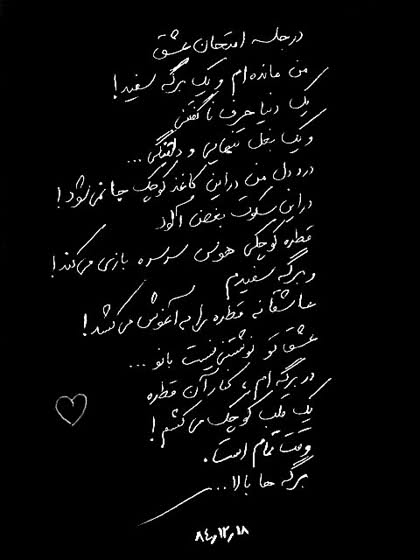 در جلسه امتحان عشق
من مانده‌ام و یک برگه سفید!
یک دنیا حرف ناگفتنی
و یک بغل تنهایی و دلتنگی...
درد دل من در این کاغذ کوچک جا نمی‌شود!
در این سکوت بغض آلود
قطره کوچکی هوس سرسره بازی می‌کند!
و برگه سفیدم
عاشقانه قطره را به آغوش می‌کشد!
عشق تو نوشتنی نیست بانو...
در برگه‌ام، کنار آن قطره
یک قلب کوچک می‌کشم!
وقت تمام است.
برگه ها بالا...
۸۴,۱۲,۱۸